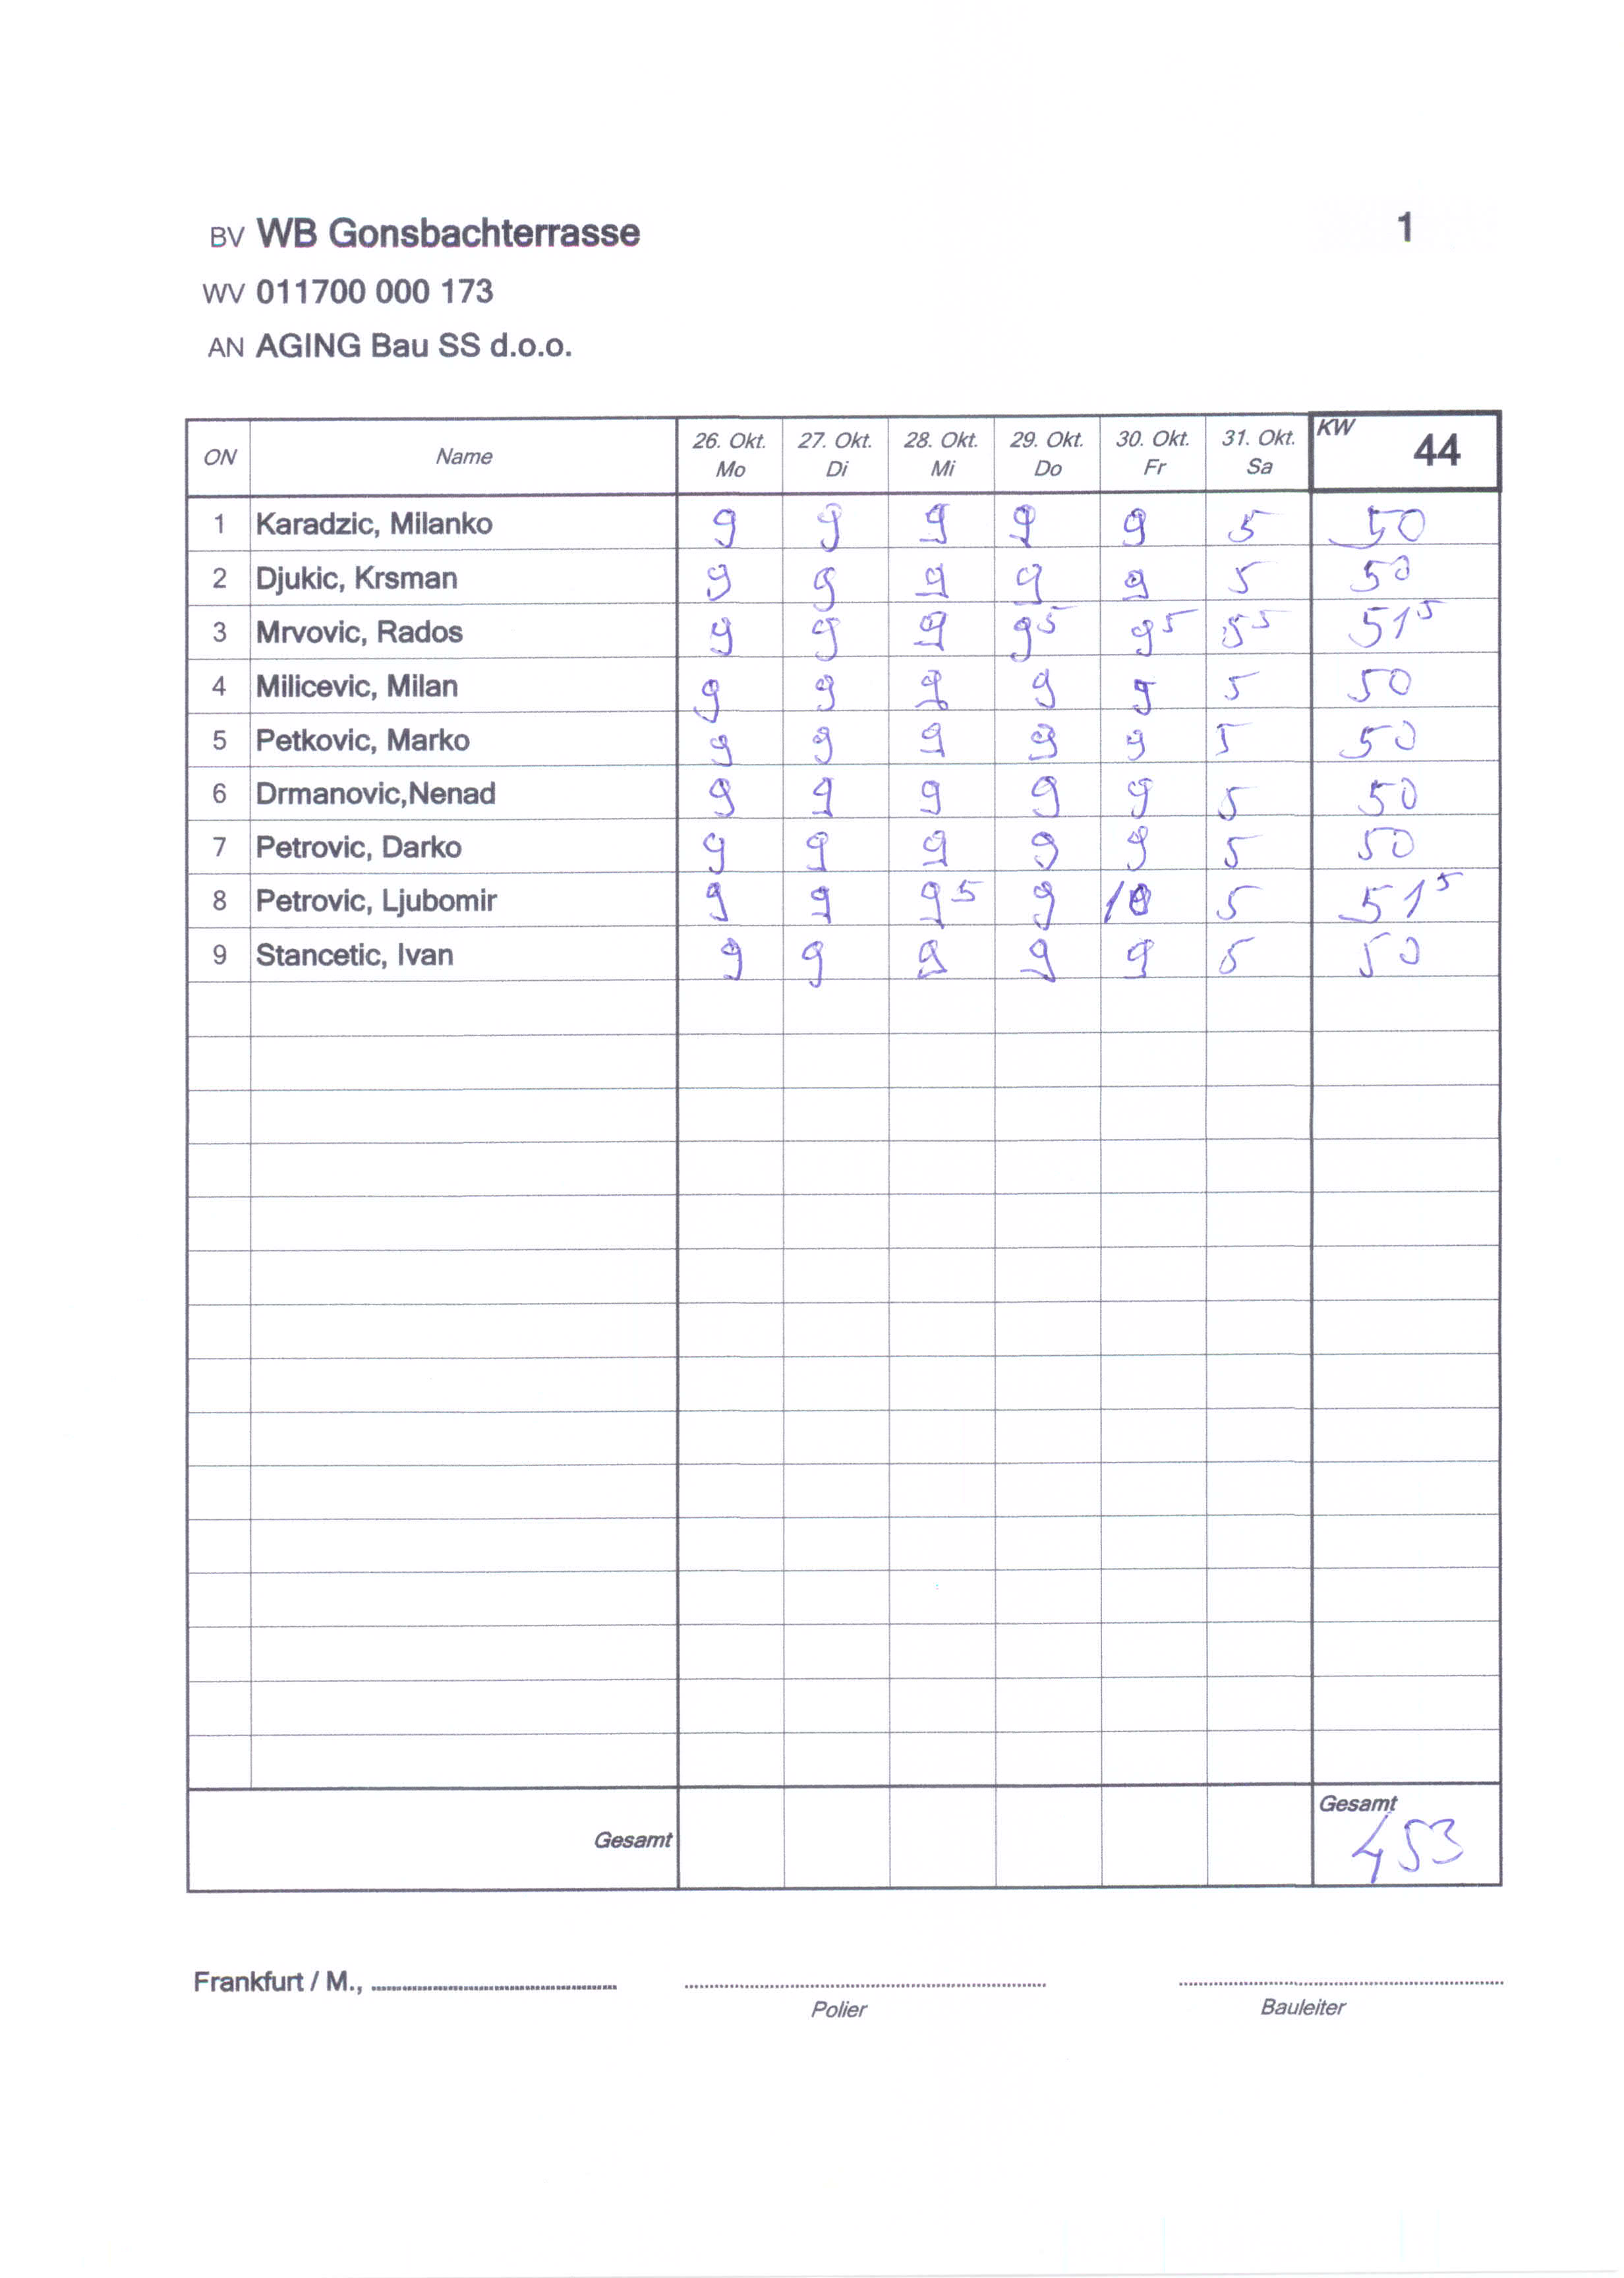 BV WB Gonsbachterrasse 1
WV 011700 000 173
AN AGING Bau SS d.o.o.
ON Name 26. Okt. Mo 27. Okt. Di 28. Okt. Mi 29. Okt. Do 30. Okt. Fr 31. Okt. Sa KW 44
1 Karadzic, Milanko 9 9 9 9 9 5 50
2 Djukic, Krsman 9 9 9 9 9 5 50
3 Mrvovic, Rados 9 9 9 9⁵ 9⁵ 5⁵ 51⁵
4 Milicevic, Milan 9 9 9 9 9 5 50
5 Petkovic, Marko 9 9 9 9 9 5 50
6 Drmanovic,Nenad 9 9 9 9 9 5 50
7 Petrovic, Darko 9 9 9 9 9 5 50
8 Petrovic, Ljubomir 9 9 9⁵ 9 10 5 51⁵
9 Stancetic, Ivan 9 9 9 9 9 5 50
Gesamt Gesamt 453
Frankfurt / M.,
Polier Bauleiter